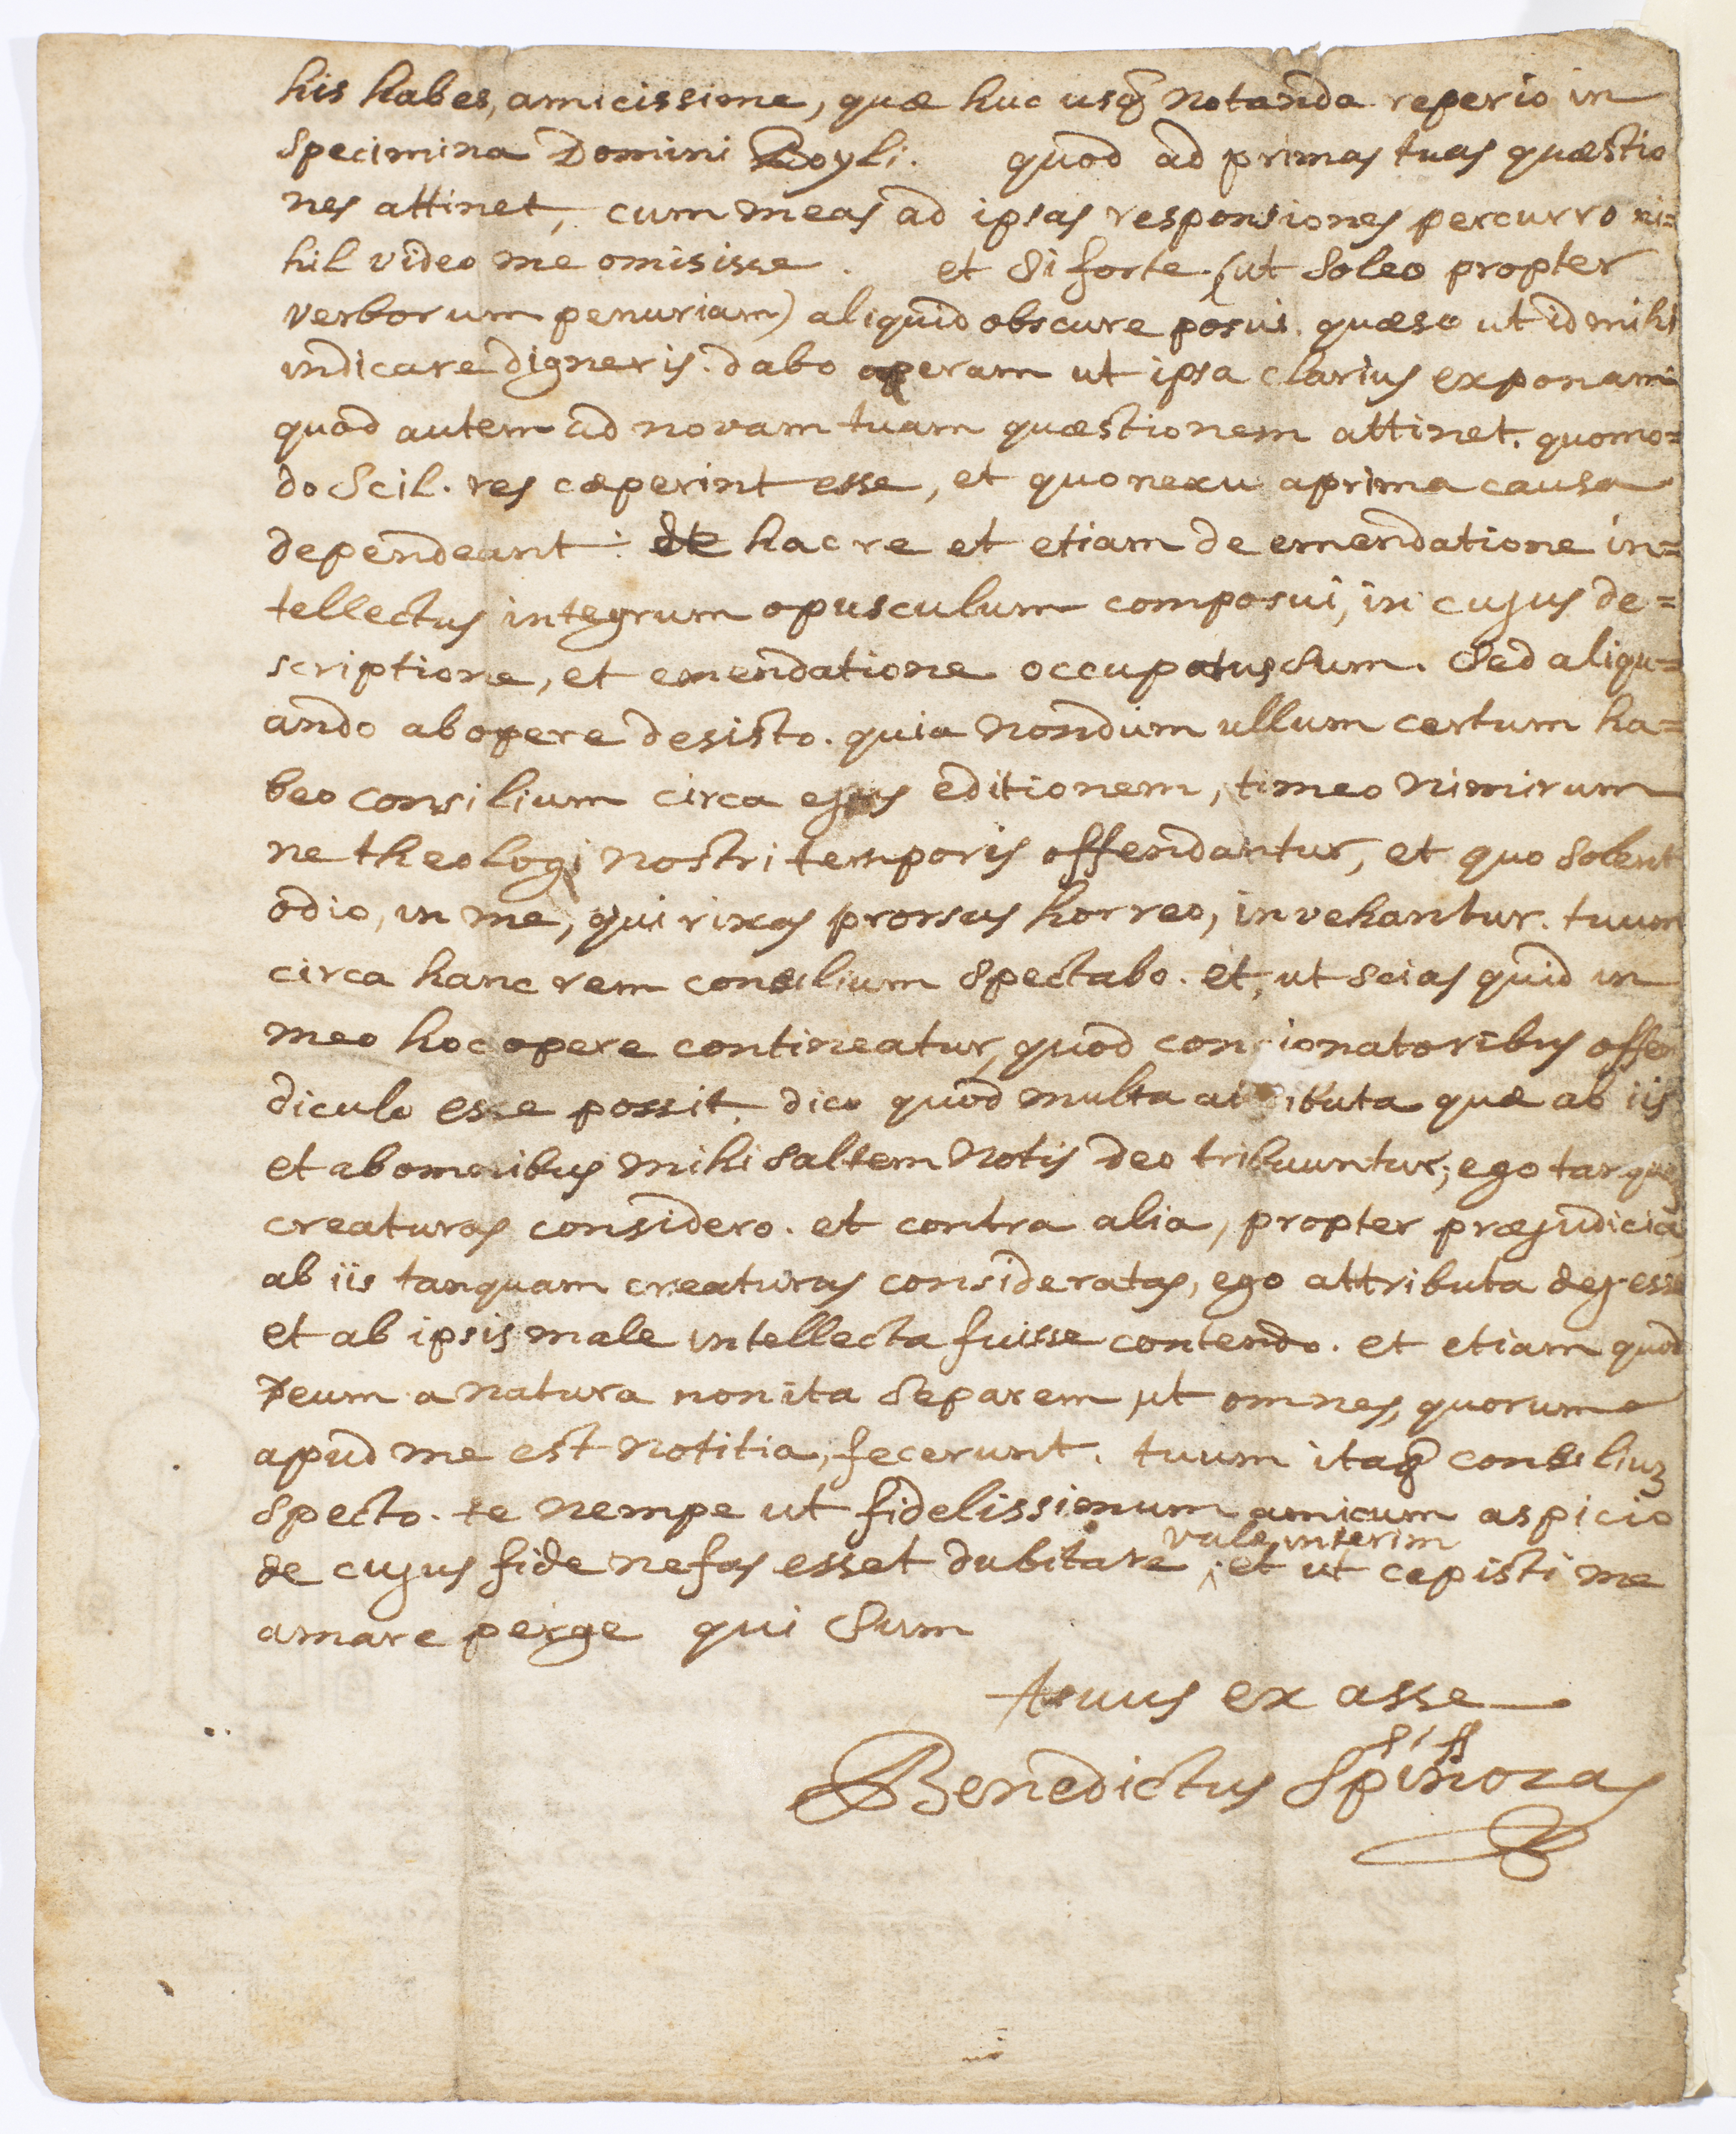 his habes, amicissime, quæ huc usq̃ notanda reperio in
Specimina Domini Boyli. quod ad primas tuas quæstio
nes attinet, cum meas ad ipsas responsiones percurro ni=
hil video me omisisse. et si forte (ut soleo propter
verborum penuriam) aliquid obscure posui. quæso ut id mihi
indicare digneris. dabo operam ut ipsa clarius exponam
quod autem ad novam tuam quæstionem attinet. quomo=
do Scil. res cæperint esse, et quo nexu a prima causa
dependeant: de hac re et etiam de emendatione in=
tellectus integrum opusculum composui, in cujus de=
scriptione, et emendatione occupatus sum. Sed aliqu=
ando ab opere desisto. quia nondum ullum certum ha=
beo consilium circa ejus editionem, timeo nimirum
ne theologi nostri temporis offendantur, et quo solent
odio, in me, qui rixas prorsus horreo, invehantur. tuum
circa hanc rem consilium spectabo. et, ut scias quid in
meo hoc opere contineatur, quod concionatoribus offen
diculo esse possit, dico quod multa attributa quæ ab iis
et ab omnibus mihi saltem notis deo tribuuntur; ego tanquam
creaturas considero. et contra alia, propter præjudicia
ab iis tanquam creaturas consideratas, ego attributa dej esse
et ab ipsis male intellecta fuisse contendo. et etiam quod
Deum a natura non ita separem ut omnes, quorum
apud me est notitia, fecerunt. tuum itaq̃ consiliuꝫ
specto. te nempe ut fidelissimum amicum aspicio
de cujus fide nefas esset dubitare. vale interim et ut cepisti me
amare perge qui sum
tuus ex asse
Benedictus Spinozas